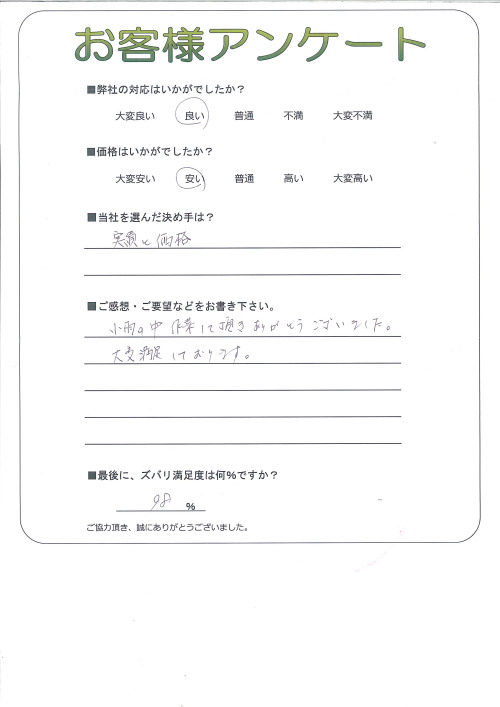 お客様アンケート
■弊社の対応はいかがでしたか？
大変良い 良い 普通 不満 大変不満
■価格はいかがでしたか？
大変安い 安い 普通 高い 大変高い
■当社を選んだ決め手は？
実績と価格
■ご感想・ご要望などをお書き下さい。
小雨の中作業して頂きありがとうございました。
大変満足しております。
■最後に、ズバリ満足度は何％ですか？
98 ％
ご協力頂き、誠にありがとうございました。